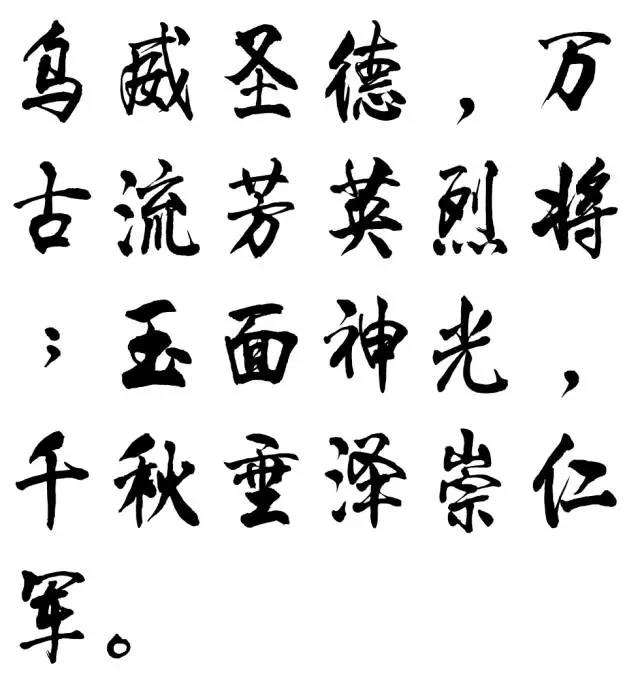 鸟威圣德，万
古流芳英烈将
；玉面神光，
千秋垂泽崇仁
军。